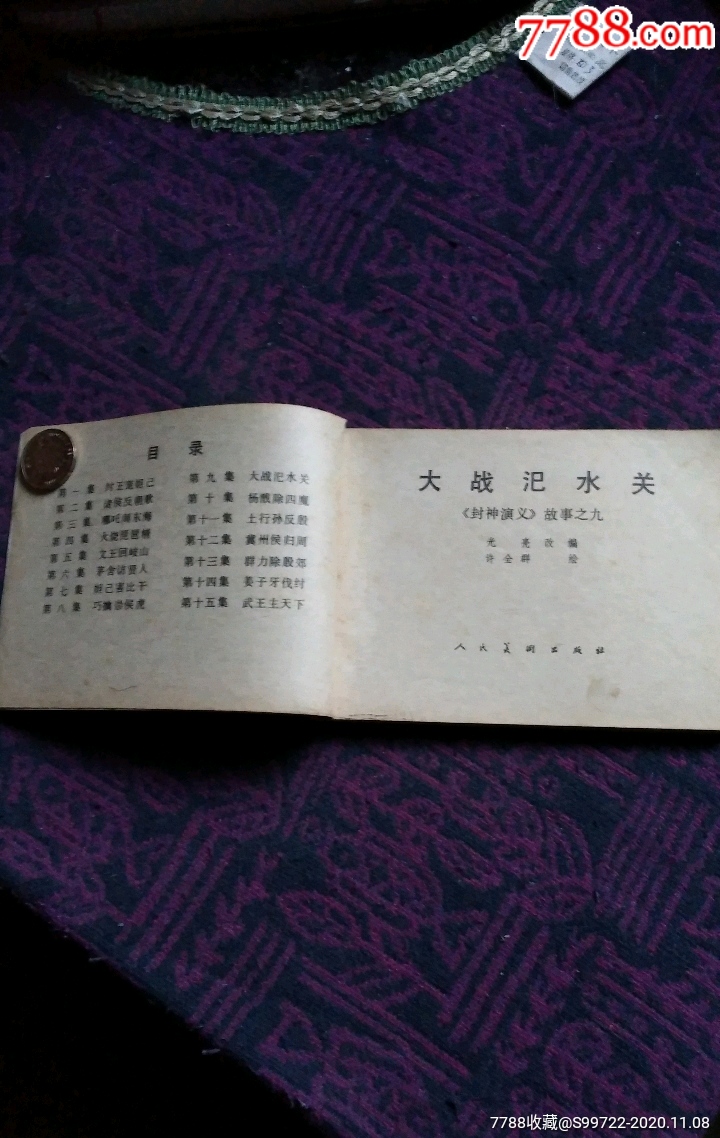 7788.com
目录
第一集 纣王宠妲己
第二集 诸侯反朝歌
第三集 哪吒闹东海
第四集 火烧琵琶精
第五集 文王回岐山
第六集 茅舍访贤人
第七集 妲己害比干
第八集 巧擒崇侯虎
第九集 大战汜水关
第十集 杨戬除四魔
第十一集 土行孙反殷
第十二集 冀州侯归周
第十三集 群力除殷郊
第十四集 姜子牙伐纣
第十五集 武王主天下
大战汜水关
《封神演义》故事之九
光亮改编
许全群绘
人民美术出版社
7788收藏@S99722-2020.11.08